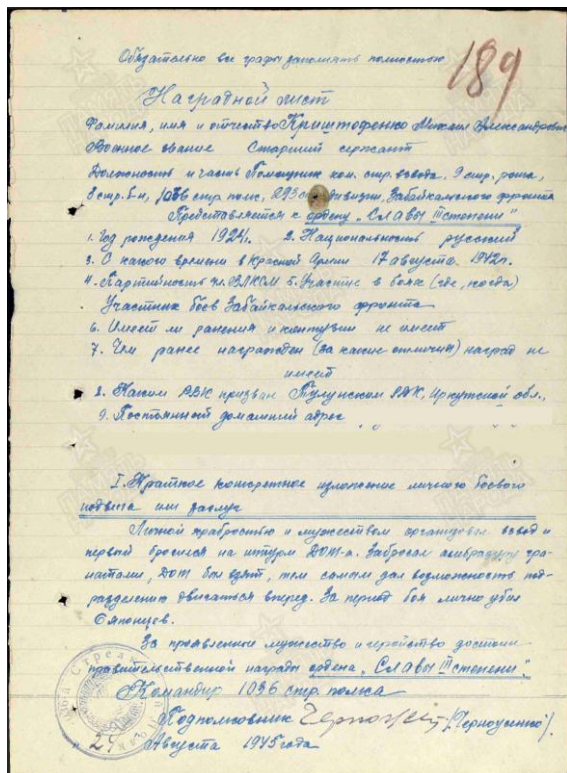 Обязательно все графы заполнять полностью
189
Наградной лист
Фамилия, имя и отчество Криштофенко Михаил Александрович
Военное звание Старший сержант
Должность и часть Помощник ком. стр. взвода, 9 стр. рота,
3 стр. б-н, 1036 стр. полк, 293 дивизии, Забайкальского фронта
Представляется к ордену „Славы III степени"
1. Год рождения 1924г. 2. Национальность русский
3. С какого времени в Красной Армии 17 августа 1942г.
4. Партийность чл. ВЛКСМ 5. Участие в боях (где, когда)
Участник боев Забайкальского фронта
6. Имеет ли ранения и контузии не имеет
7. Чем ранее награжден (за какие отличия) наград не
имеет
8. Каким РВК призван Тулунском РВК, Иркутской обл.,
9. Постоянный домашний адрес
I. Краткое конкретное изложение личного боевого
подвига или заслуг
Личной храбростью и мужеством организовал взвод и
первый бросился на штурм ДОТ-а. Забросал амбразуру гра-
натами, ДОТ был взят, тем самым дал возможность под-
разделению двигаться вперед. За период боя лично убил
6 японцев.
За проявленные мужество и геройство достоин
правительственной награды ордена „Славы III степени".
Командир 1036 стр. полка
Подполковник /Черноусенко/.
"24" Августа 1945 года